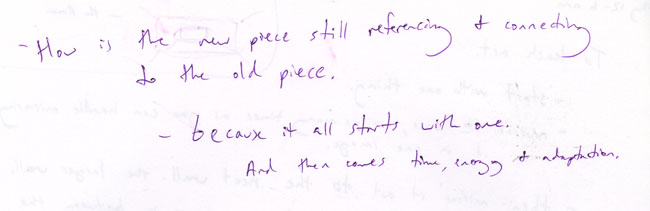 - How is the new piece still referencing & connecting
to the old piece.
- because it all starts with one.
And then comes time, energy & adaptation.